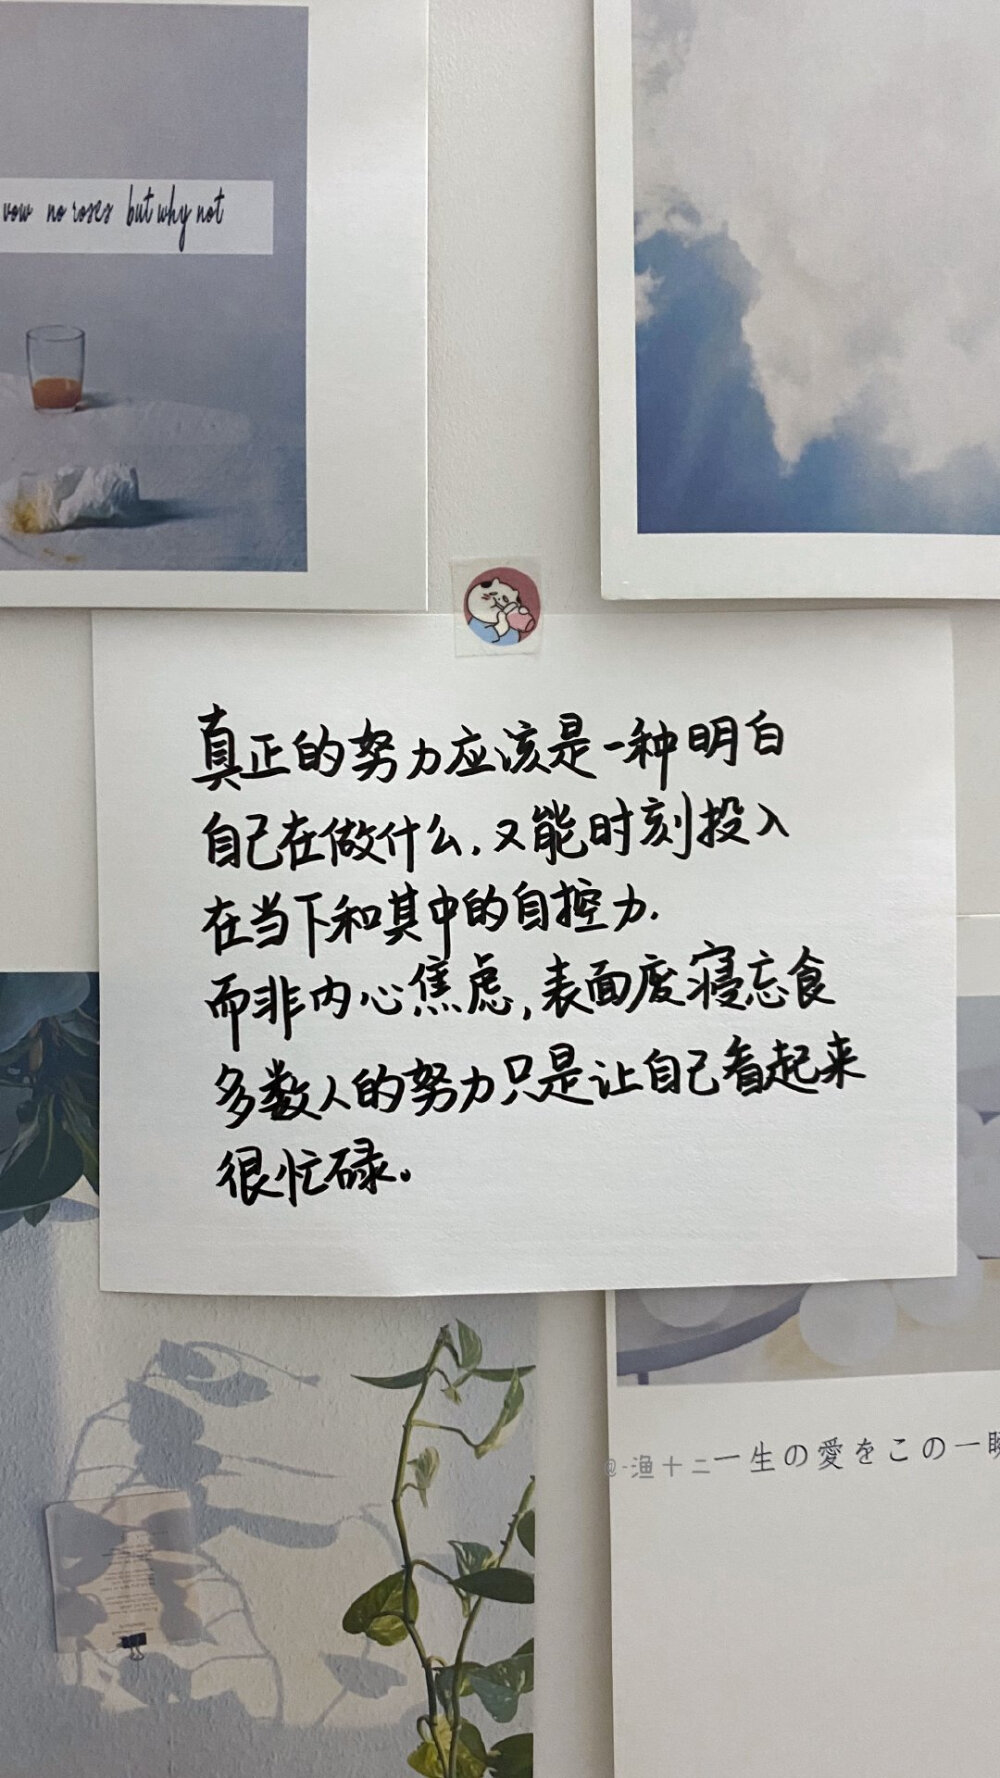 vow no roses but why not
真正的努力应该是一种明白
自己在做什么，又能时刻投入
在当下和其中的自控力.
而非内心焦虑，表面废寝忘食
多数人的努力只是让自己看起来
很忙碌。
@-渔十二
一生の愛をこの一瞬